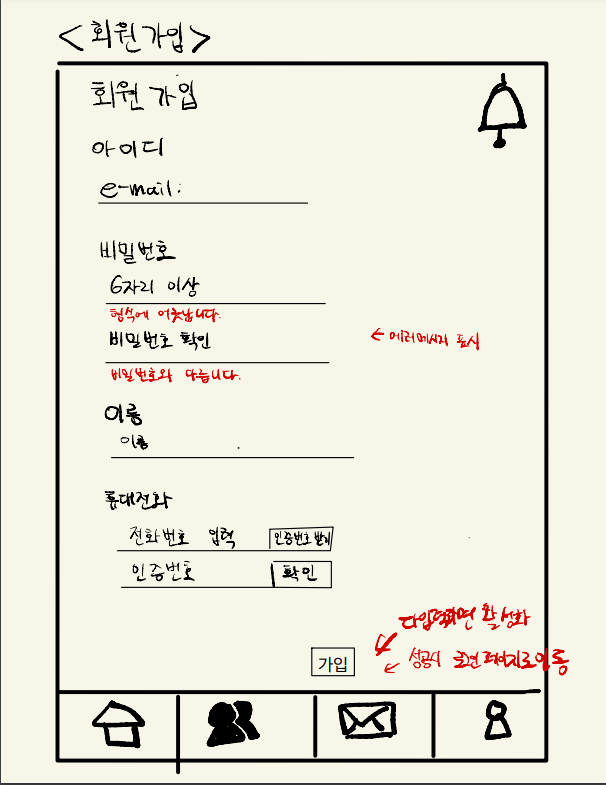 <회원가입>
회원 가입
아이디
e-mail:
비밀번호
6자리 이상
형식에 어긋납니다.
비밀번호 확인
← 에러메시지 표시
비밀번호와 다릅니다.
이름
이름
휴대전화
전화번호 입력 인증번호 받기
인증번호 확인
다입력하면 활성화
가입
← 성공시 로그인 페이지로 이동